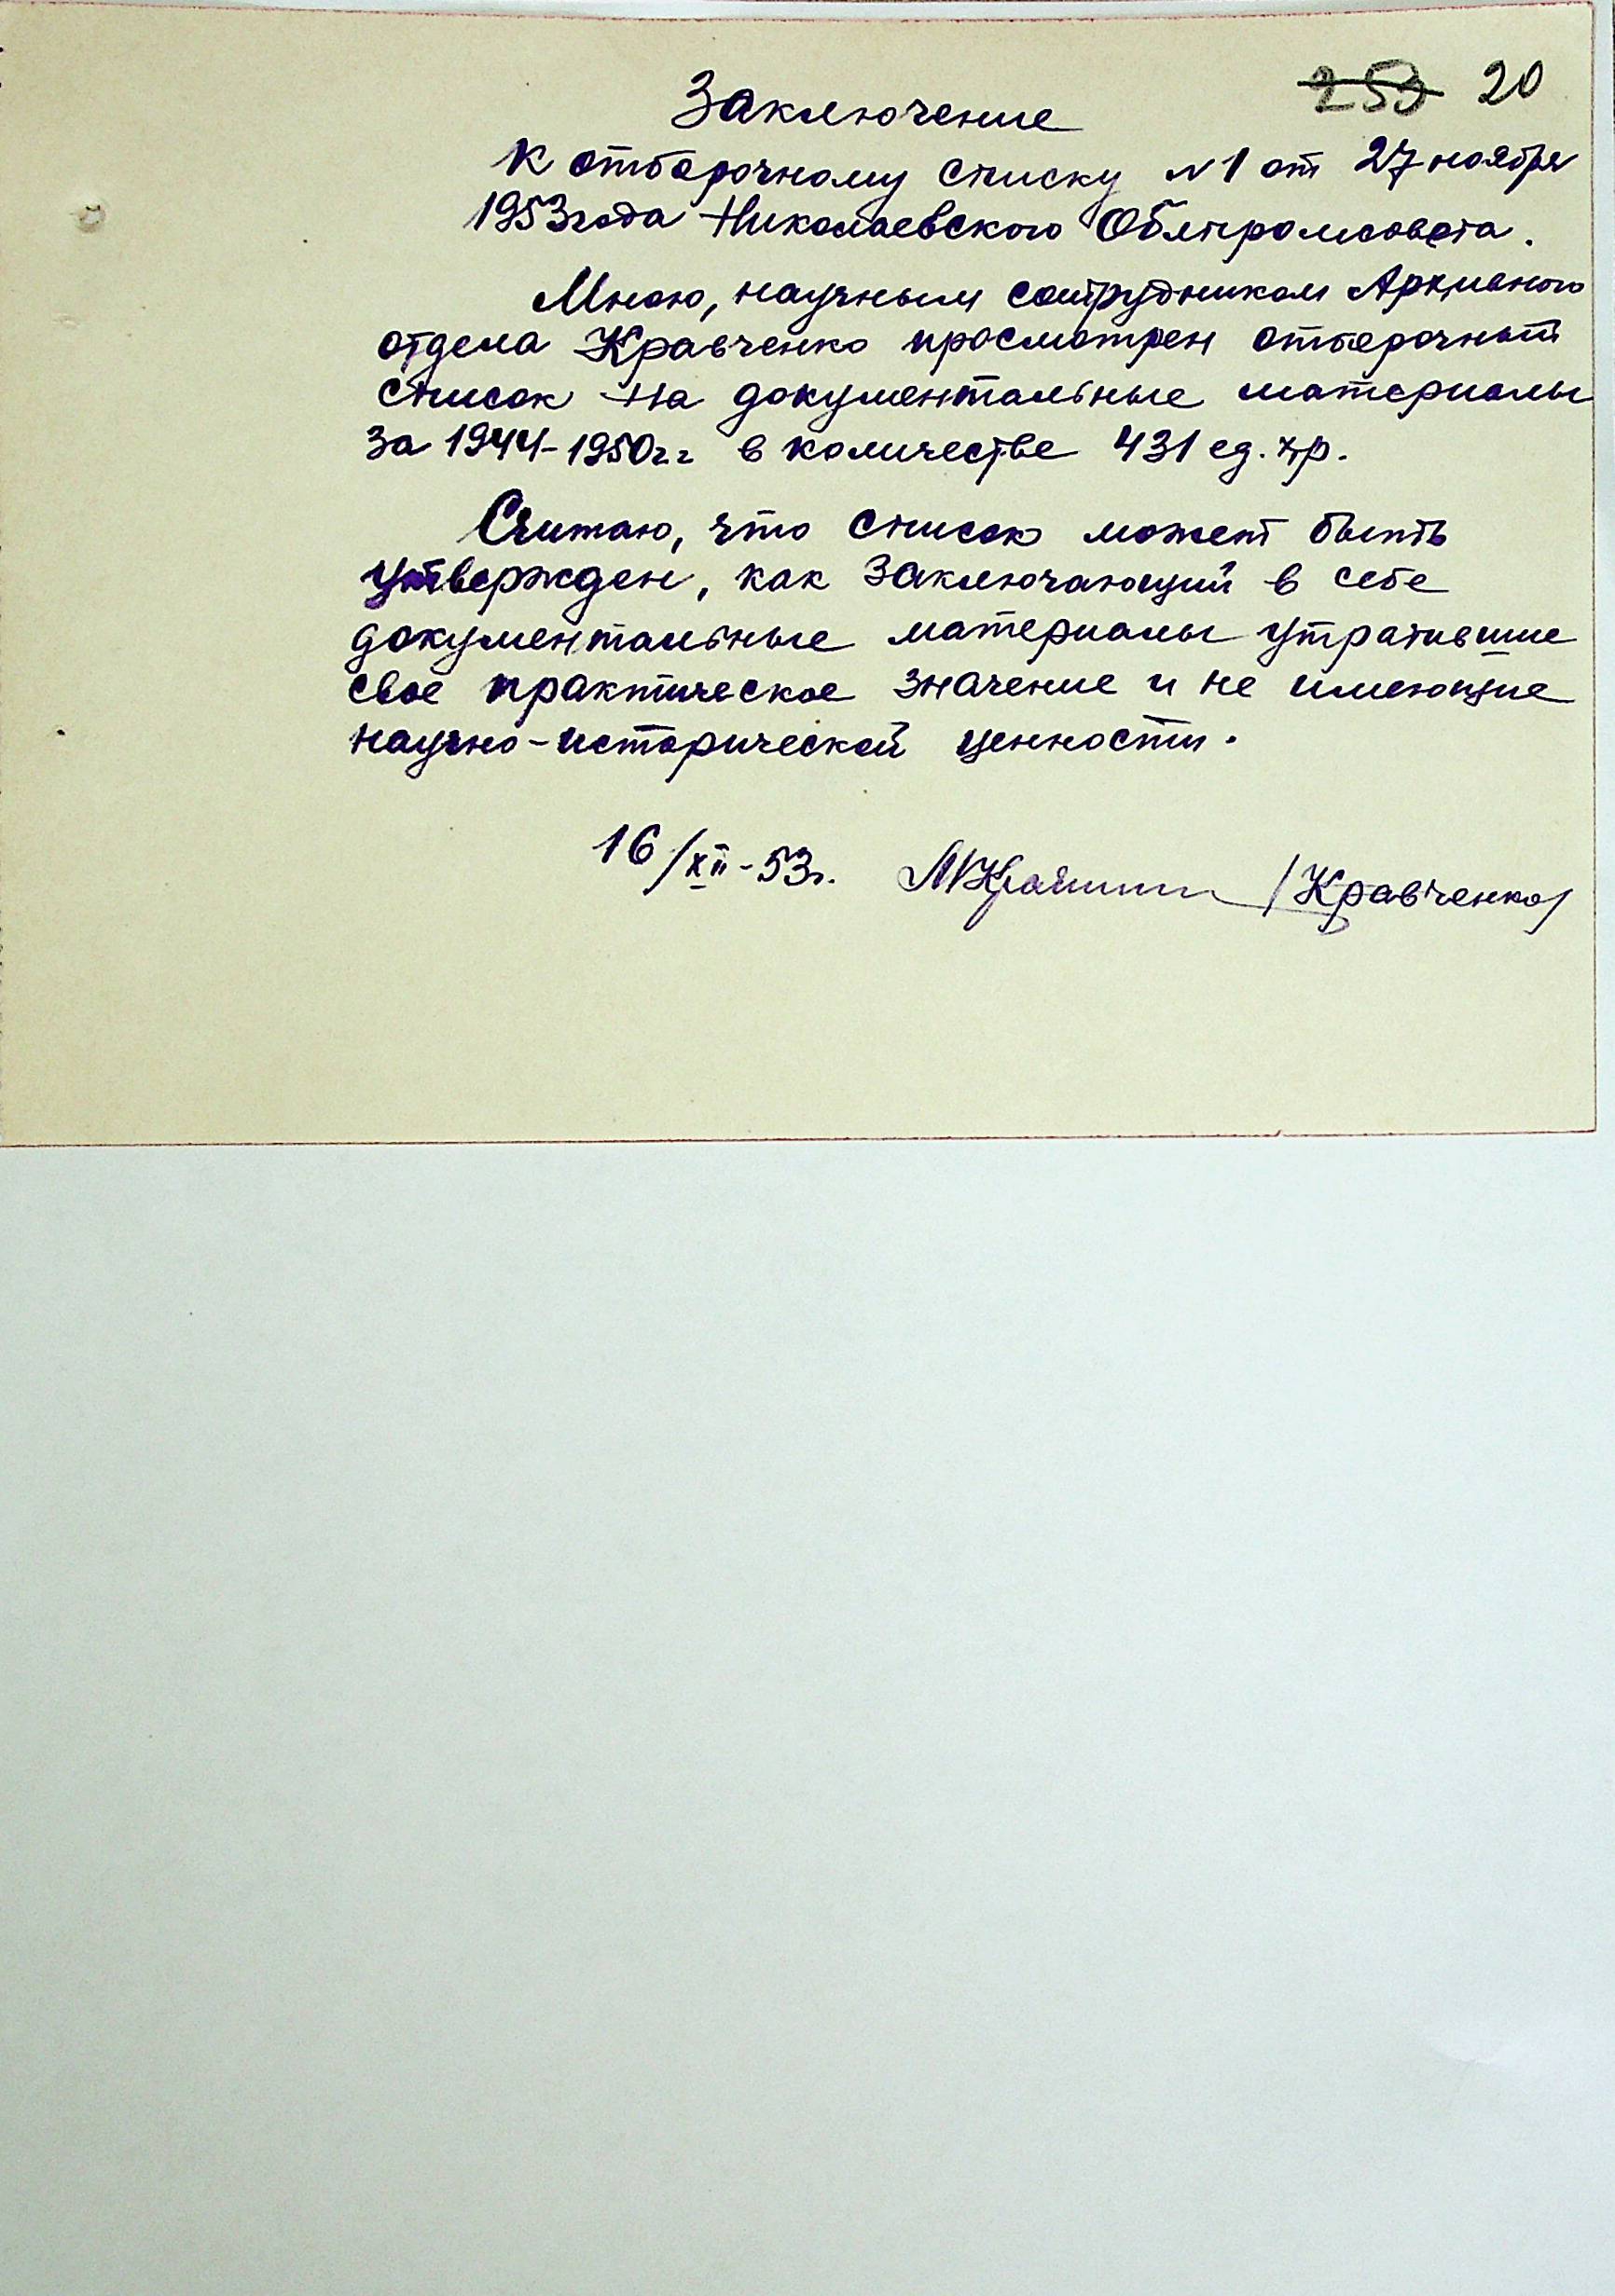 253 20
Заключение
к отборочному списку N1 от 27 ноября
1953 года Николаевского Облпромсовета.
Мною, научным сотрудником Архивного
отдела Кравченко просмотрен отборочный
список на документальные материалы
за 1944-1950 гг в количестве 431 ед. хр.
Считаю, что список может быть
утвержден, как заключающий в себе
документальные материалы утратившие
свое практическое значение и не имеющие
научно-исторической ценности.
16/XII-53г. /Кравченко/